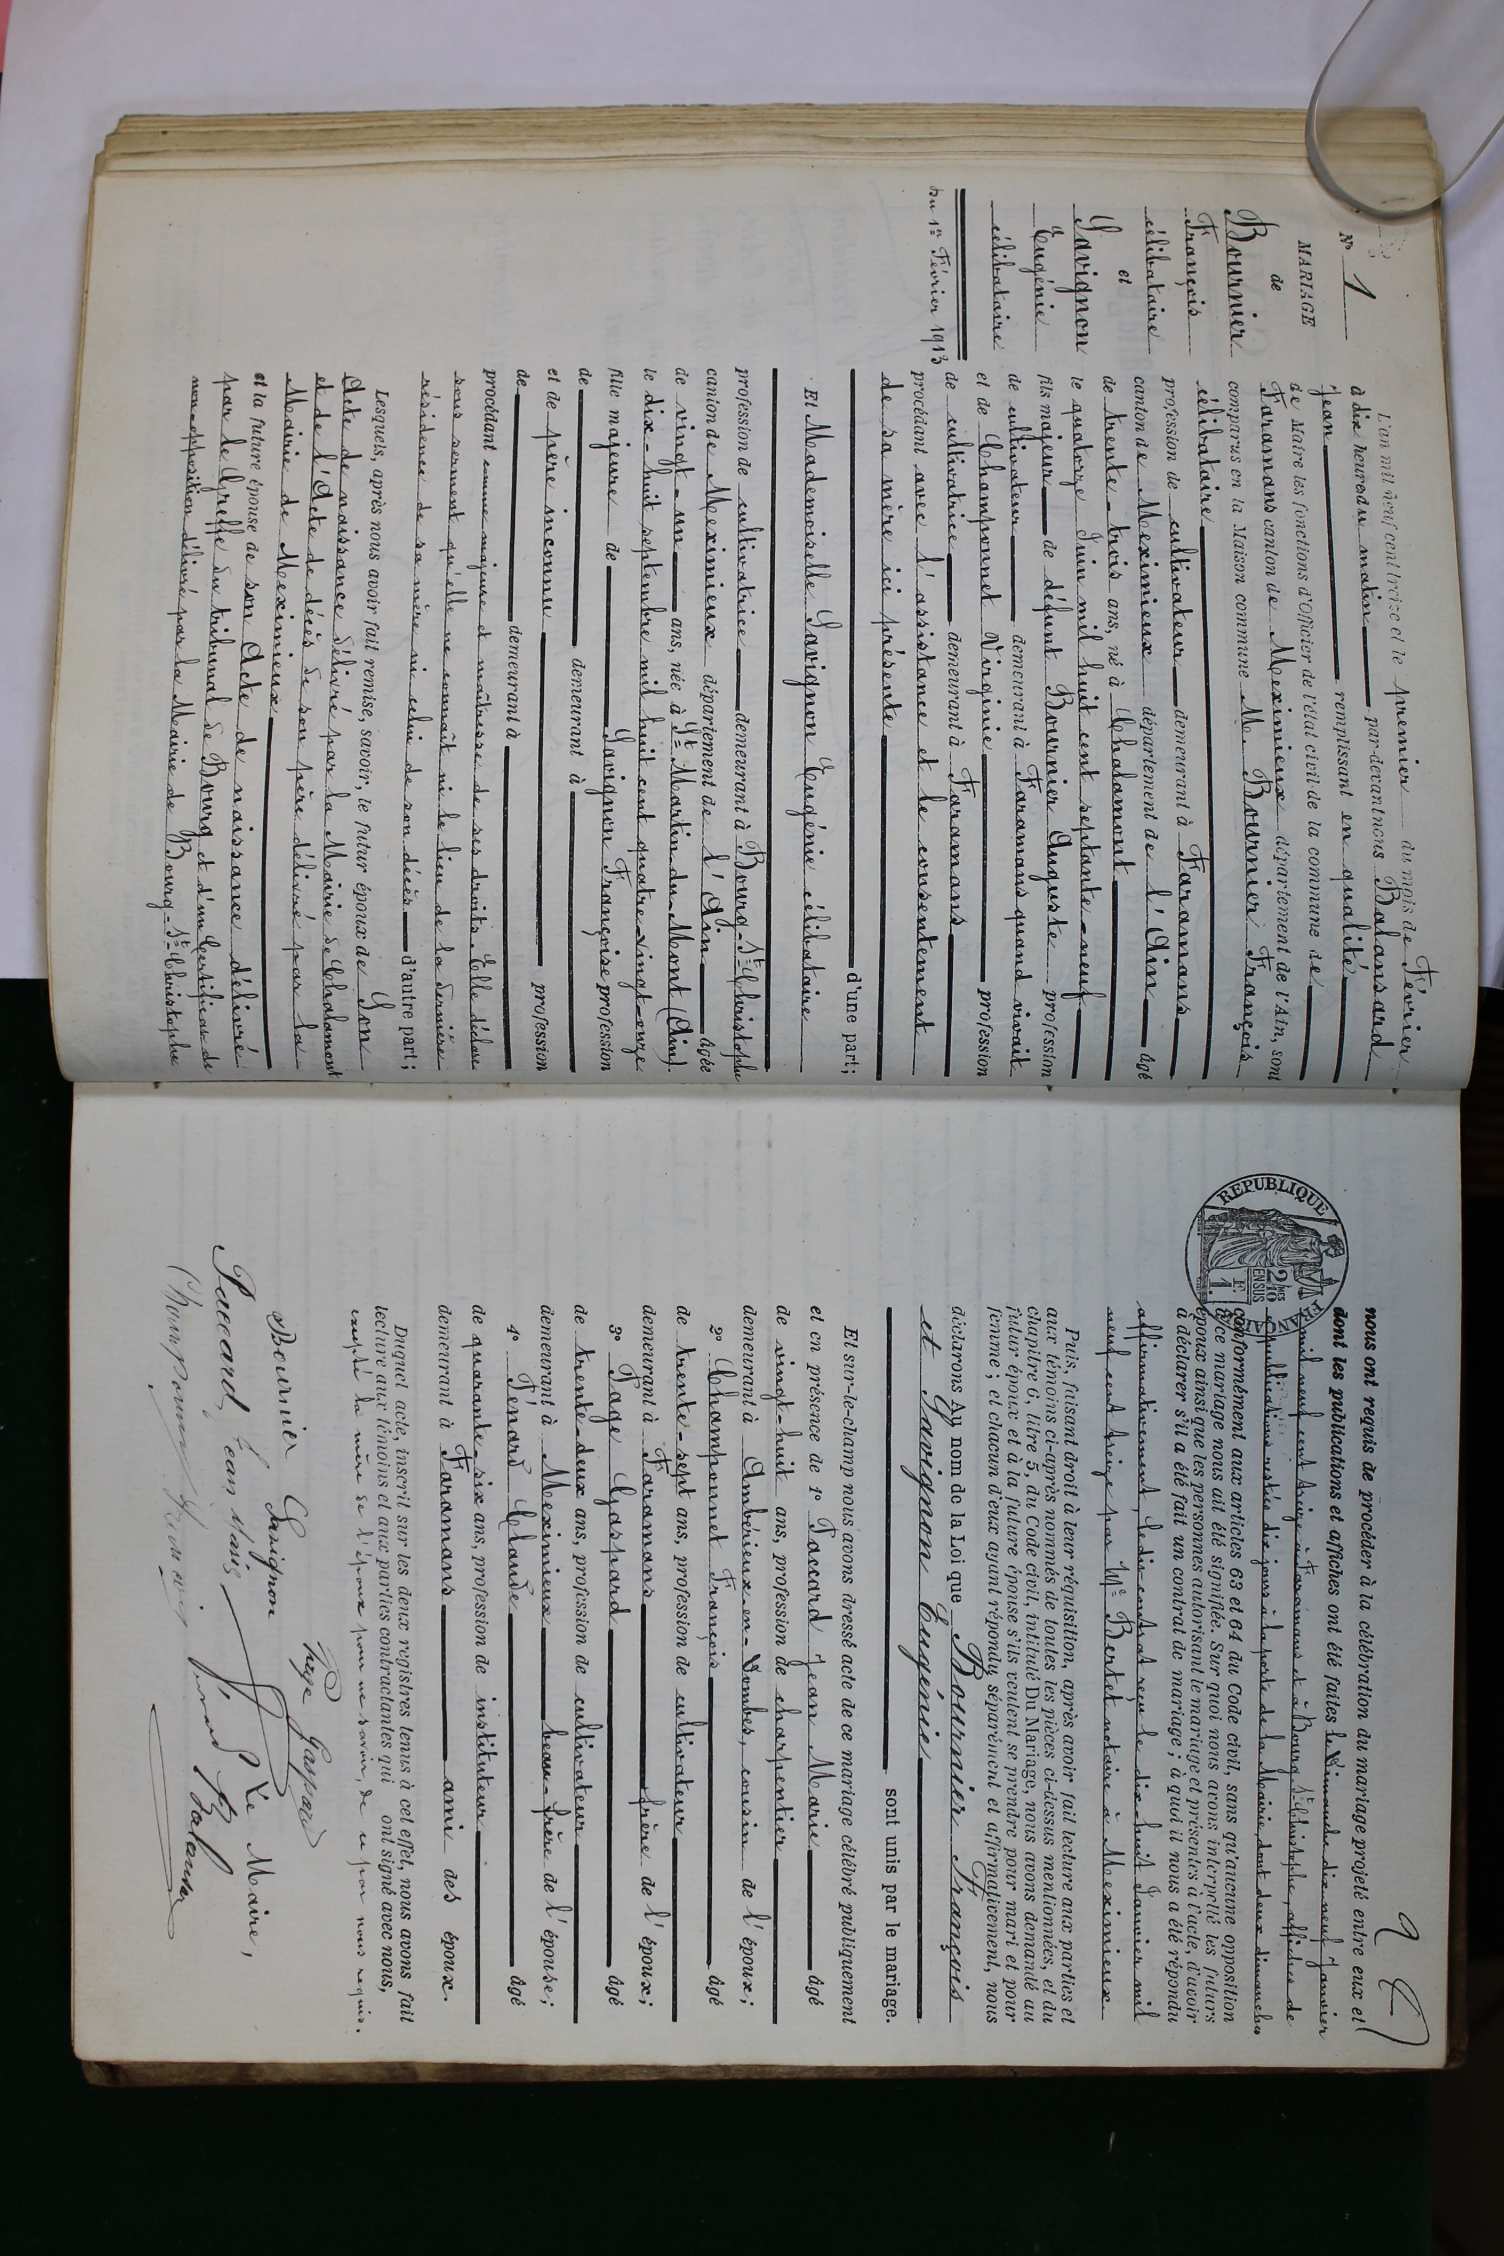 N° 1
MARIAGE
de
Bournier
François
célibataire
et
Savignon
Eugénie
célibataire
du 1er Février 1913
L'an mil neuf cent treize et le premier du mois de Février
à dix heures du matin par-devant nous Balansard
Jean remplissant en qualité
de Maire les fonctions d'Officier de l'état civil de la commune de
Faramans canton de Meximieux département de l'Ain, sont
comparus en la Maison commune M. Bournier François
célibataire
profession de cultivateur demeurant à Faramans
canton de Meximieux département de l'Ain âgé
de trente-trois ans, né à Chalamont
le quatorze Juin mil huit cent septante-neuf
fils majeur de défunt Bournier Auguste profession
de cultivateur demeurant à Faramans quand vivait
et de Champonnet Virginie profession
de cultivatrice demeurant à Faramans
procédant avec l'assistance et le consentement
de sa mère ici présente
d'une part;
Et Mademoiselle Savignon Eugénie célibataire
profession de cultivatrice demeurant à Bourg-St-Christophe
canton de Meximieux département de l'Ain âgée
de vingt-un ans, née à St-Martin-du-Mont (Ain)
le dix-huit septembre mil huit cent quatre-vingt-onze
fille majeure de Savignon Françoise profession
de demeurant à
et de père inconnu profession
de demeurant à
procédant comme majeure et maîtresse de ses droits. Elle déclare
sous serment qu'elle ne connaît ni le lieu de la dernière
résidence de sa mère ni celui de son décès d'autre part;
Lesquels, après nous avoir fait remise, savoir, le futur époux de Son
Acte de naissance délivré par la Mairie de Chalamont
et de l'Acte de décès de son père délivré par la
Mairie de Meximieux
et la future épouse de son Acte de naissance délivré
par le Greffe du tribunal de Bourg et d'un Certificat de
non opposition délivré par la Mairie de Bourg-St-Christophe
nous ont requis de procéder à la célébration du mariage projeté entre eux et
dont les publications et affiches ont été faites le Dimanche dix-neuf Janvier
mil neuf cent treize à Faramans et à Bourg St-Christophe, affiches de
publications restées dix jours à la porte de la Mairie, dont deux dimanches
conformément aux articles 63 et 64 du Code civil, sans qu'aucune opposition
à ce mariage nous ait été signifiée. Sur quoi nous avons interpellé les futurs
époux ainsi que les personnes autorisant le mariage et présentes à l'acte, d'avoir
à déclarer s'il a été fait un contrat de mariage; à quoi il nous a été répondu
affirmativement, ledit contrat reçu le dix-huit Janvier mil
neuf cent treize par Me Bertet notaire à Meximieux
Puis, faisant droit à leur réquisition, après avoir fait lecture aux parties et
aux témoins ci-après nommés de toutes les pièces ci-dessus mentionnées, et du
chapitre 6, titre 5, du Code civil, intitulé Du Mariage, nous avons demandé au
futur époux et à la future épouse s'ils veulent se prendre pour mari et pour
femme; et chacun d'eux ayant répondu séparément et affirmativement, nous
déclarons Au nom de la Loi que Bournier François
et Savignon Eugénie
sont unis par le mariage.
Et sur-le-champ nous avons dressé acte de ce mariage célébré publiquement
et en présence de 1° Paccard Jean Marie âgé
de vingt-huit ans, profession de charpentier
demeurant à Ambérieux-en-Dombes, cousin de l'époux;
2° Champonnet François âgé
de trente-sept ans, profession de cultivateur
demeurant à Faramans frère de l'époux;
3° Page Gaspard âgé
de trente-deux ans, profession de cultivateur
demeurant à Meximieux beau-frère de l'épouse;
4° Pénard Claude âgé
de quarante-six ans, profession de instituteur
demeurant à Faramans ami des époux.
Duquel acte, inscrit sur les deux registres tenus à cet effet, nous avons fait
lecture aux témoins et aux parties contractantes qui ont signé avec nous,
excepté la mère de l'époux pour ne savoir, de ce par nous requis.
Bournier Savignon Page Gaspard
Paccard Jean Marie Le Maire,
Champonnet Pénard Balansard
REPUBLIQUE
2/10 EN SUS
1 F.